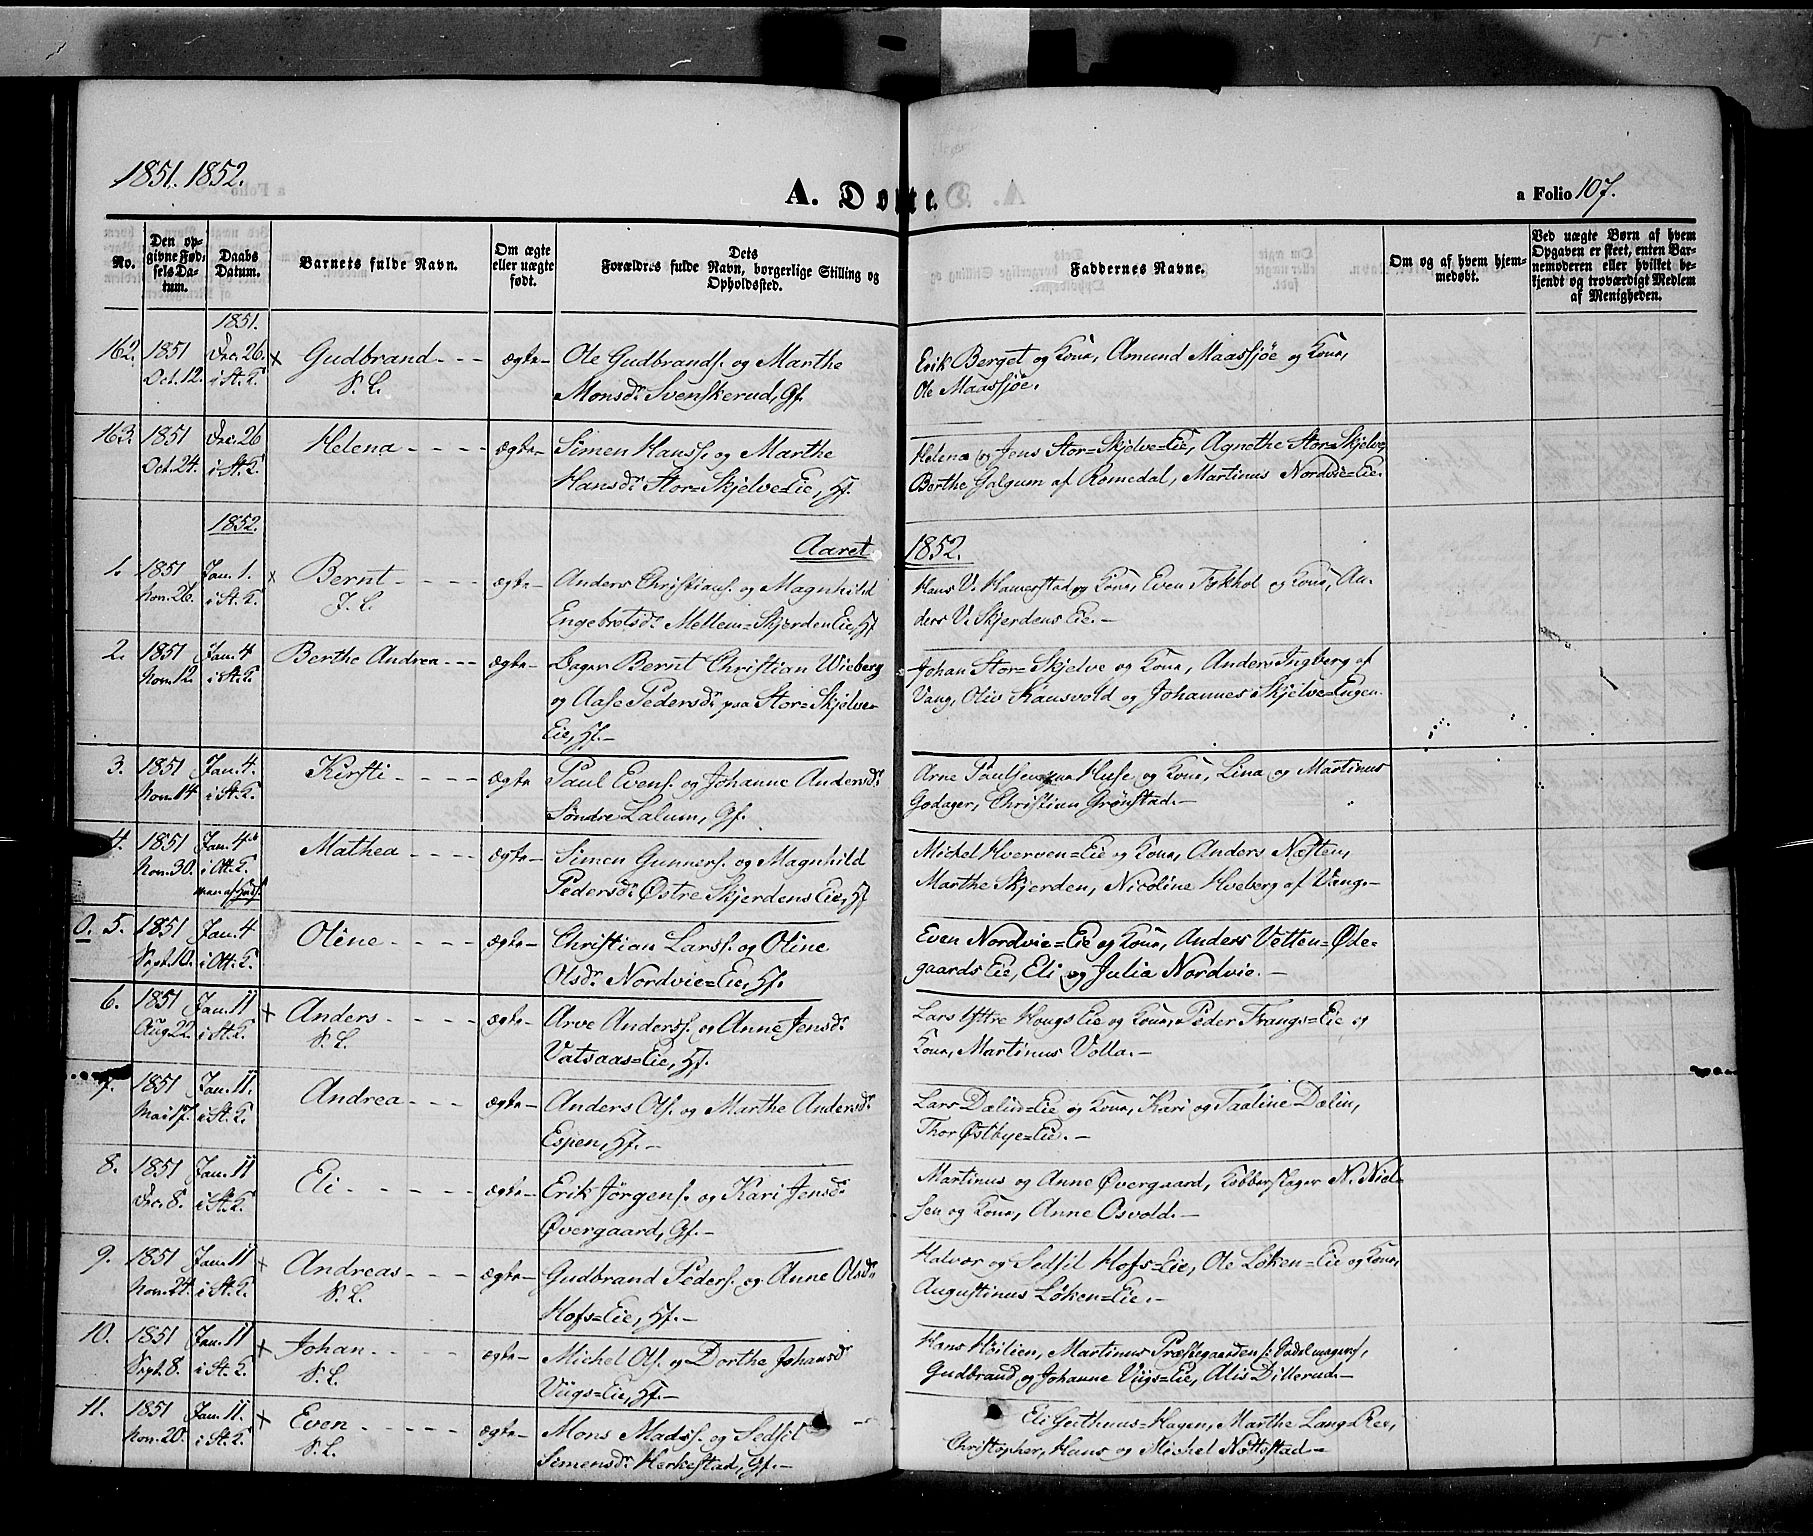 1851. 1852.
A. Døbte.
a Folio 107.
No.
Den opgivne Fødselsdatum.
Daabs Datum.
Barnets fulde Navn.
Om ægte eller uægte født.
Forældres fulde Navn, borgerlige Stilling og Opholdssted.
Faddernes Navne.
Om og af hvem hjemmedøbt.
Ved uægte Børn af hvem Opgaven er skeet, enten Barnemoderen eller hvilket bekjendt og troværdigt Medlem af Menigheden.
1851.
162. 1851 Dec. 26. x Gudbrand - - - ægte Ole Gudbrands. og Marthe Erik Berget og Kone, Amund Maassjøe og Kone,
Oct. 12. i St. K. S. L. Monsd. Svenskerud, Gf. Ole Maassjøe.
163. 1851 Dec. 26 Helena - - - - ægte Simen Hanss. og Marthe Helena og Jens Stor=Skjelve=Eie, Agnethe Stor=Skjelve,
Oct. 24. i St. K. Hansd. Stor=Skjelve=Eie, Hf. Berthe Galgum af Romedal, Martinus Nordvie=Eie.
1852.
Aaret 1852.
1. 1851 Jan. 1. x Bernt - - - - ægte Anders Christians. og Magnhild Hans V. Hamerstad og Kone, Even Fokhol og Kone, An-
Nov. 26. i St. K. J. L. Engebretsd. Mellem=Skjerden Eie, Hf. ders V. Skjerdens Eie. -
2. 1851 Jan. 4 Berthe Andrea - - - ægte Bager Bernt Christian Wieberg Johan Stor=Skjelve og Kone, Anders Ingberg af
Nov. 12. i St. K. og Aase Pedersd. paa Stor=Skjelve- Vang, Oliv Kausvold og Johannes Skjelve=Engen.
Eie, Hf. -
3. 1851 Jan. 4. Kirsti - - - - ægte Paul Evens. og Johanne Andersd. Arne Paulsen Huse og Kone, Lina og Martinus
Nov. 14. i St. K. Søndre Lalum, Gf. Godager, Christian Grønstad. -
4. 1851 Jan. 4 Mathea - - - - ægte Simen Gunners. og Magnhild Michel Hverven=Eie og Kone, Anders Næsten,
Nov. 30. i Ott. K. Pedersd. Østre Skjerdens Eie, Hf Marthe Skjerden, Nicoline Hveberg af Vang. -
O. 5. 1851 Jan. 4 Oline - - - - ægte Christian Larss. og Oline Even Nordvie=Eie og Kone, Anders Vetten=Øde-
Sept. 10. i Ott. K. Olsd. Nordvie=Eie, Hf. gaards Eie, Eli og Julia Nordvie. -
6. 1851 Jan. 11 x Anders - - - - ægte Arve Anders. og Anne Jensd. Lars Yttre Hougs Eie og Kone, Peder Frangs=Eie og
Aug. 22. i St. K. S. L. Vatsaas=Eie, Hf. Kone, Martinus Volla. -
7. 1851 Jan. 11. Andrea - - - ægte Anders Ols. og Marthe Andersd. Lars Dælin=Eie og Kone, Kari og Taaline Dælin,
Mai 17. i St. K. Espen, Hf. - Thor Østbye=Eie. -
8. 1851 Jan. 11 Eli - - - - - ægte Erik Jørgens. og Kari Jensd. Martinus og Anne Øvergaard, Kobberslager N. Niel-
Dec. 8. i St. K. Øvergaard, Gf. - sen og Kone, Anne Osvold. -
9. 1851 Jan. 11 x Andreas - - - ægte Gudbrand Peders. og Anne Olsd. Halvor og Sedsil Hofs=Eie, Ole Løken=Eie og Kone,
Nov. 24. i St. K. S. L. Hofs=Eie, Hf. - Augustinus Løken=Eie. -
10. 1851 Jan. 11 x Johan - - - - ægte Michel Ols. og Dorthe Johansd. Hans Heilien, Martinus Præstegaarden /: Sadelmager /,
Sept. 8. i St. K. S. L. Viigs=Eie, Hf. - Gudbrand og Johanne Viigs=Eie, Alis Dillerud. -
11. 1851 Jan. 11. x Even - - - - - ægte Mons Mads. og Sedsil Eli Geithuus=Hagen, Marthe Lang Ree,
Nov. 20. i St. K. S. L. Simensd. Herkestad, Gf. - Christopher, Hans og Michel Nøttestad -